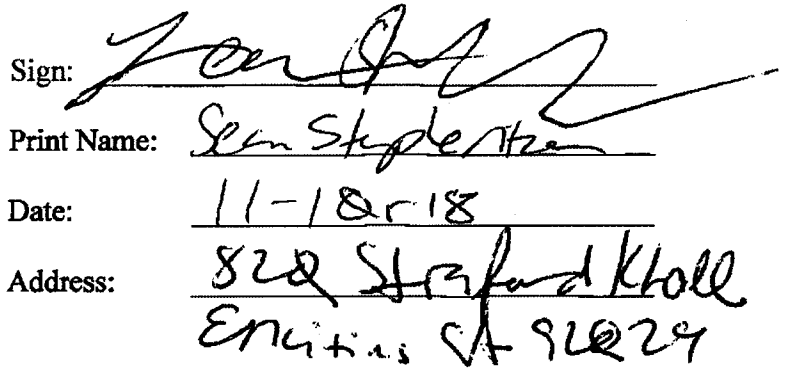 Sign:
Print Name: Sean
Date: 11-18-18
Address: 820 Strafford Knoll
Encinitas CA 92029